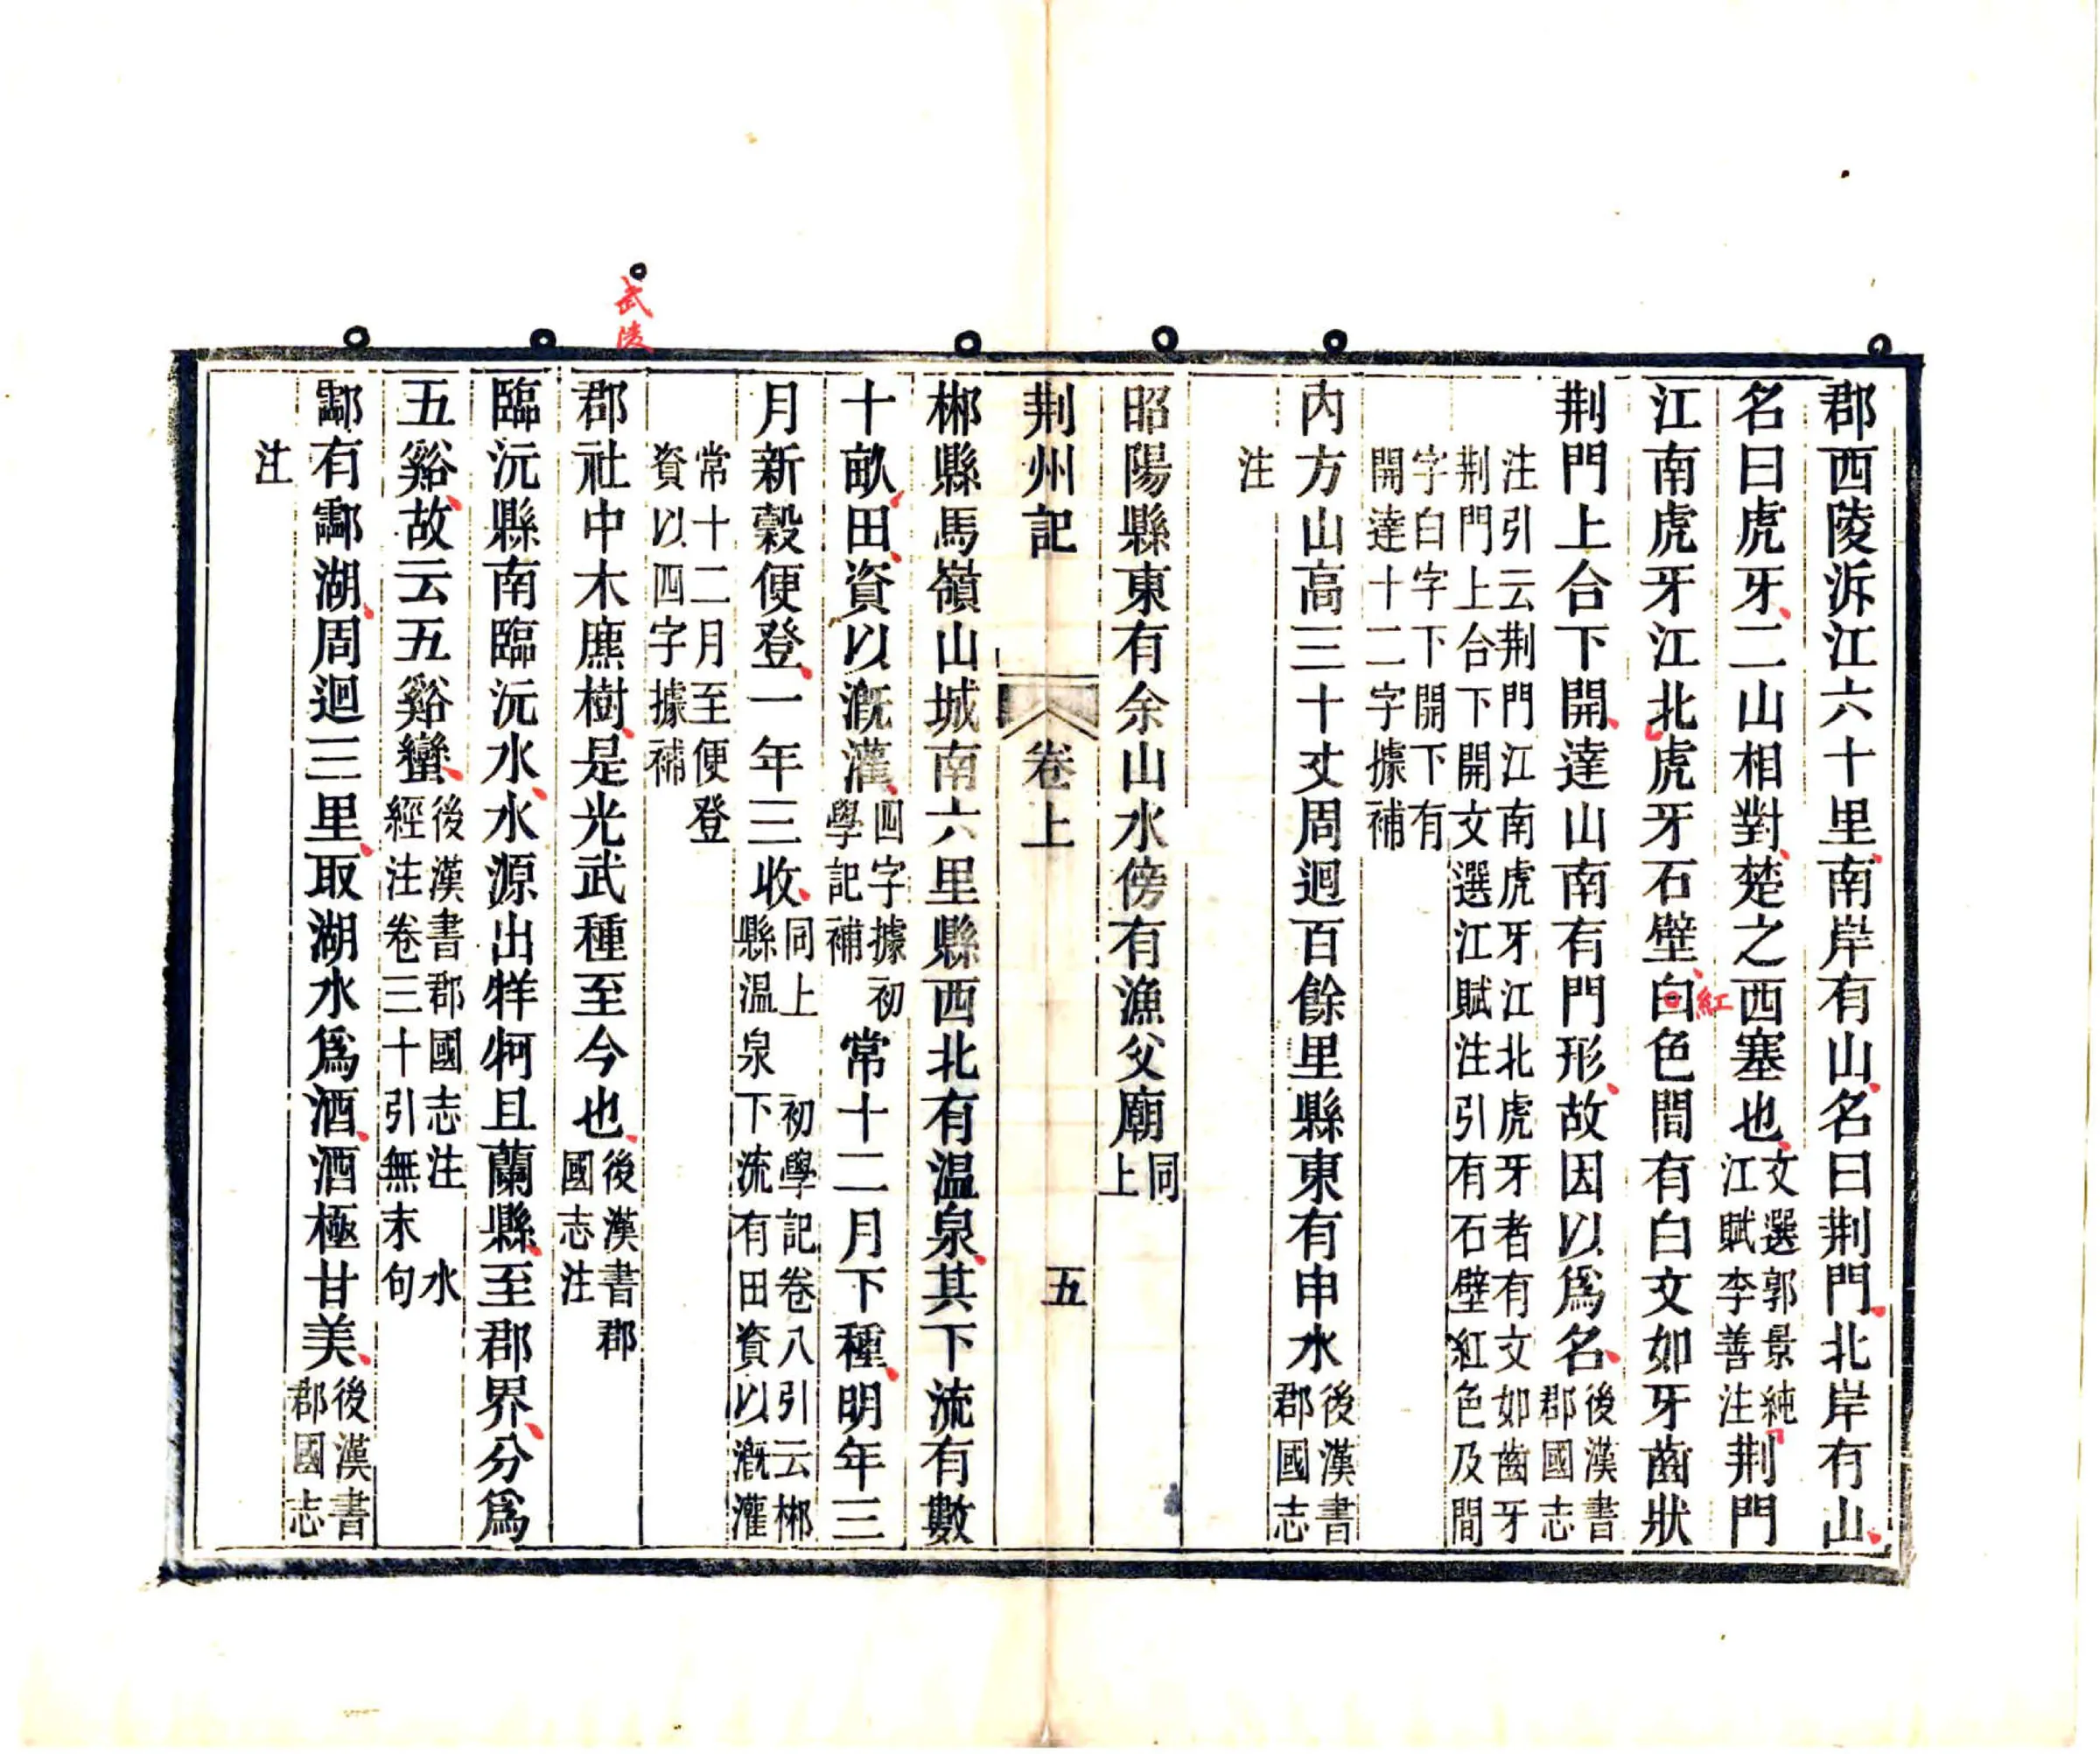 郡西陵泝江六十里南岸有山名曰荆門北岸有山
名曰虎牙二山相對楚之西塞也文選郭景純江賦李善注荆門
江南虎牙江北虎牙石壁白色間有白文如牙齒狀
紅
荆門上合下開達山南有門形故因以爲名後漢書郡國志
注引云荆門江南虎牙江北虎牙者有文如齒牙
荆門上合下開文選江賦注引有石壁紅色及間
字白字下開下有
開達十二字據補
内方山高三十丈周迴百餘里縣東有申水後漢書郡國志
注
昭陽縣東有余山水傍有漁父廟同上
荆州記 卷上 五
郴縣馬嶺山城南六里縣西北有温泉其下流有數
十畝田資以溉灌四字據初學記補常十二月下種明年三
月新穀便登一年三收同上 初學記卷八引云郴縣温泉下流有田資以溉灌
常十二月至便登
資以四字據補
武陵
郡社中木麃樹是光武種至今也後漢書郡國志注
臨沅縣南臨沅水水源出牂牁且蘭縣至郡界分爲
五谿故云五谿蠻後漢書郡國志注 水經注卷三十引無末句
酃有酃湖周迴三里取湖水爲酒酒極甘美後漢書郡國志
注